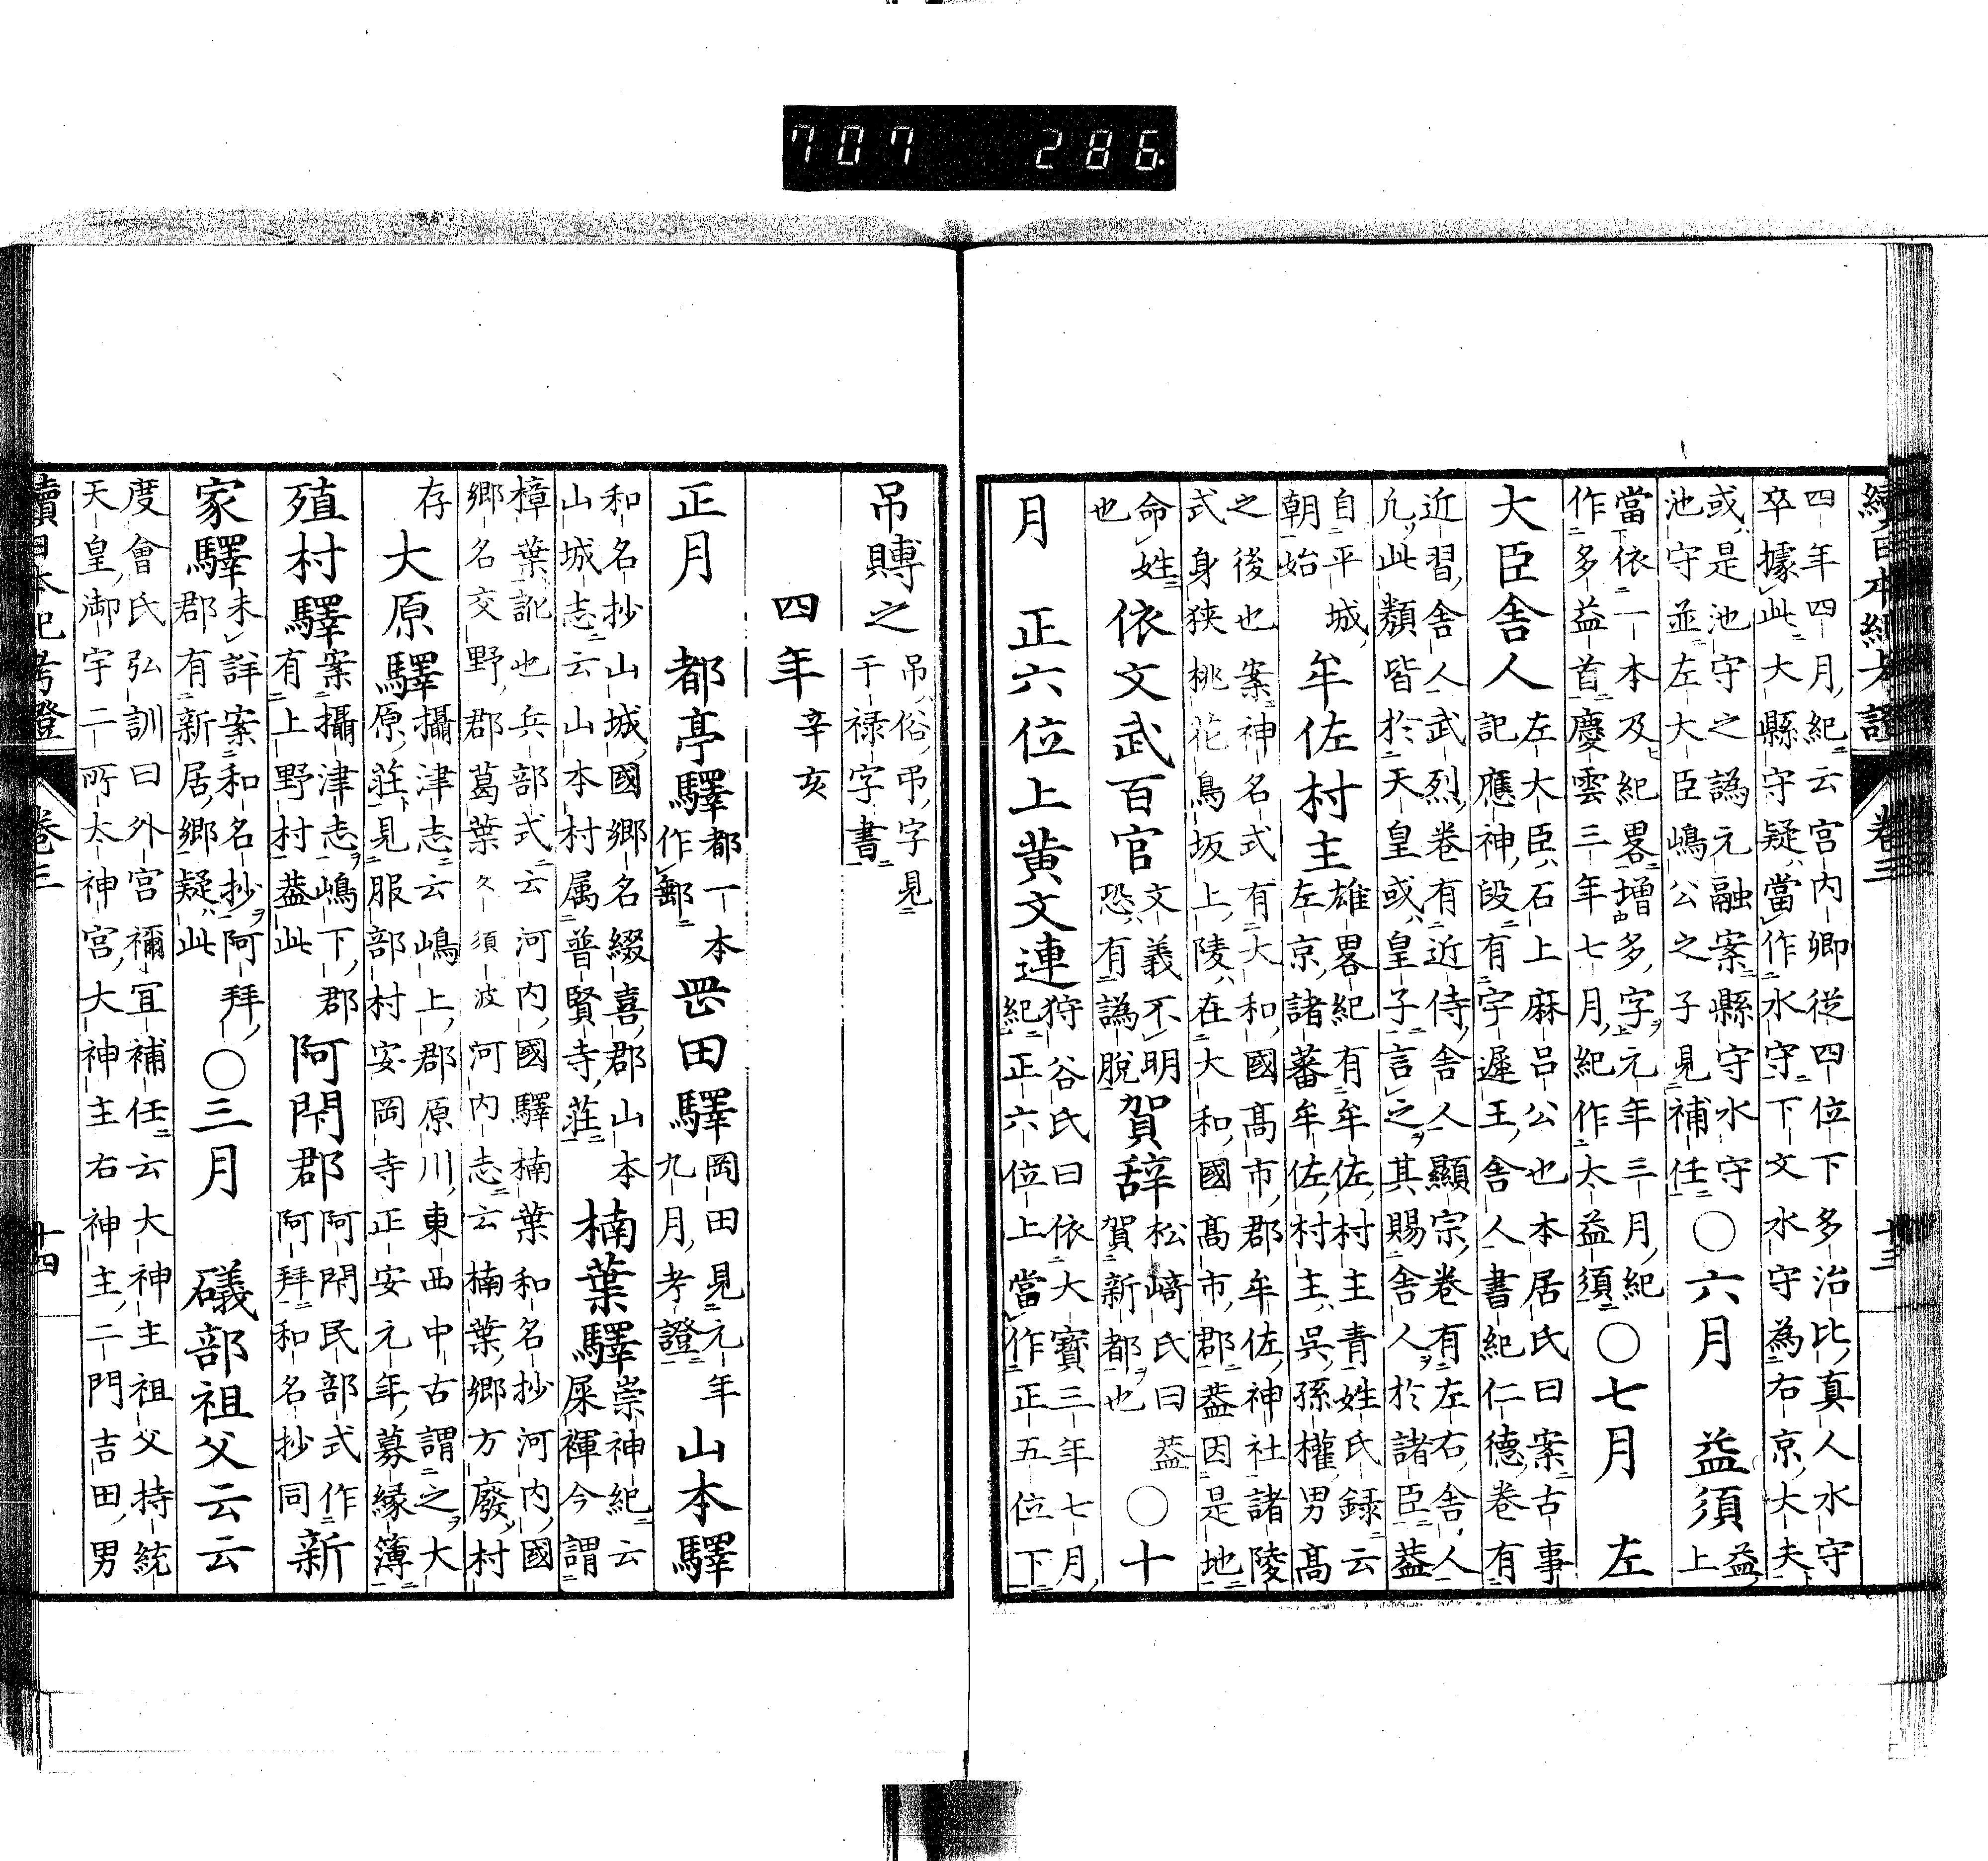 707 286
續日本紀考證 卷三 十三
四年四月紀云宮内卿従四位下多治比真人水守
卒據此大縣守疑當作水守下文水守為右京大夫
或是池守之譌元融案縣守水守
池守並左大臣嶋公之子見補任
○六月 益須
益上
當依一本及紀畧増多字元年三月紀
作多益首慶雲三年七月紀作太益須
○七月 左
大臣舎人
左大臣石上麻呂公也本居氏曰案古事
記應神段有宇遲王舎人書紀仁德卷有
近習舎人武烈卷有近侍舎人顯宗卷有左右舎人
凢此類皆於天皇或皇子言之其賜舎人於諸臣葢
自平城
朝始
牟佐村主
雄畧紀有牟佐村主青姓氏録云
左京諸蕃牟佐村主呉孫權男高
之後也案神名式有大和國高市郡牟佐神社諸陵
式身狭桃花鳥坂上陵在大和國高市郡葢因是地
命姓
也
依文武百官
文義不明
恐有譌脫
賀辞
松﨑氏曰葢
賀新都也
○十
月 正六位上黄文連
狩谷氏曰依大寳三年七月
紀正六位上當作正五位下
吊賻之
吊俗弔字見
干禄字書
四年
辛亥
正月 都亭驛
都一本
作郵
㟁田驛
岡田見元年
九月考證
山本驛
和名抄山城國郷名綴喜郡山本
山城志云山本村属普賢寺荘
楠葉驛
崇神紀云
屎褌今謂
樟葉訛也兵部式云河内國驛楠葉和名抄河内國
郷名交野郡葛葉久須波河内志云楠葉郷方廢村
存
大原驛
攝津志云嶋上郡原川東西中古謂之大
原荘見服部村安岡寺正安元年募縁簿
殖村驛
案攝津志嶋下郡
有上野村葢此
阿閇郡
阿閇民部式作
阿拜和名抄同
新
家驛
未詳案和名抄阿拜
郡有新居郷疑此
○三月 礒部祖父云云
度會氏弘訓曰外宮禰冝補任云大神主祖父持統
天皇御宇二所太神宮大神主右神主二門吉田男
續日本紀考證 卷三 十四